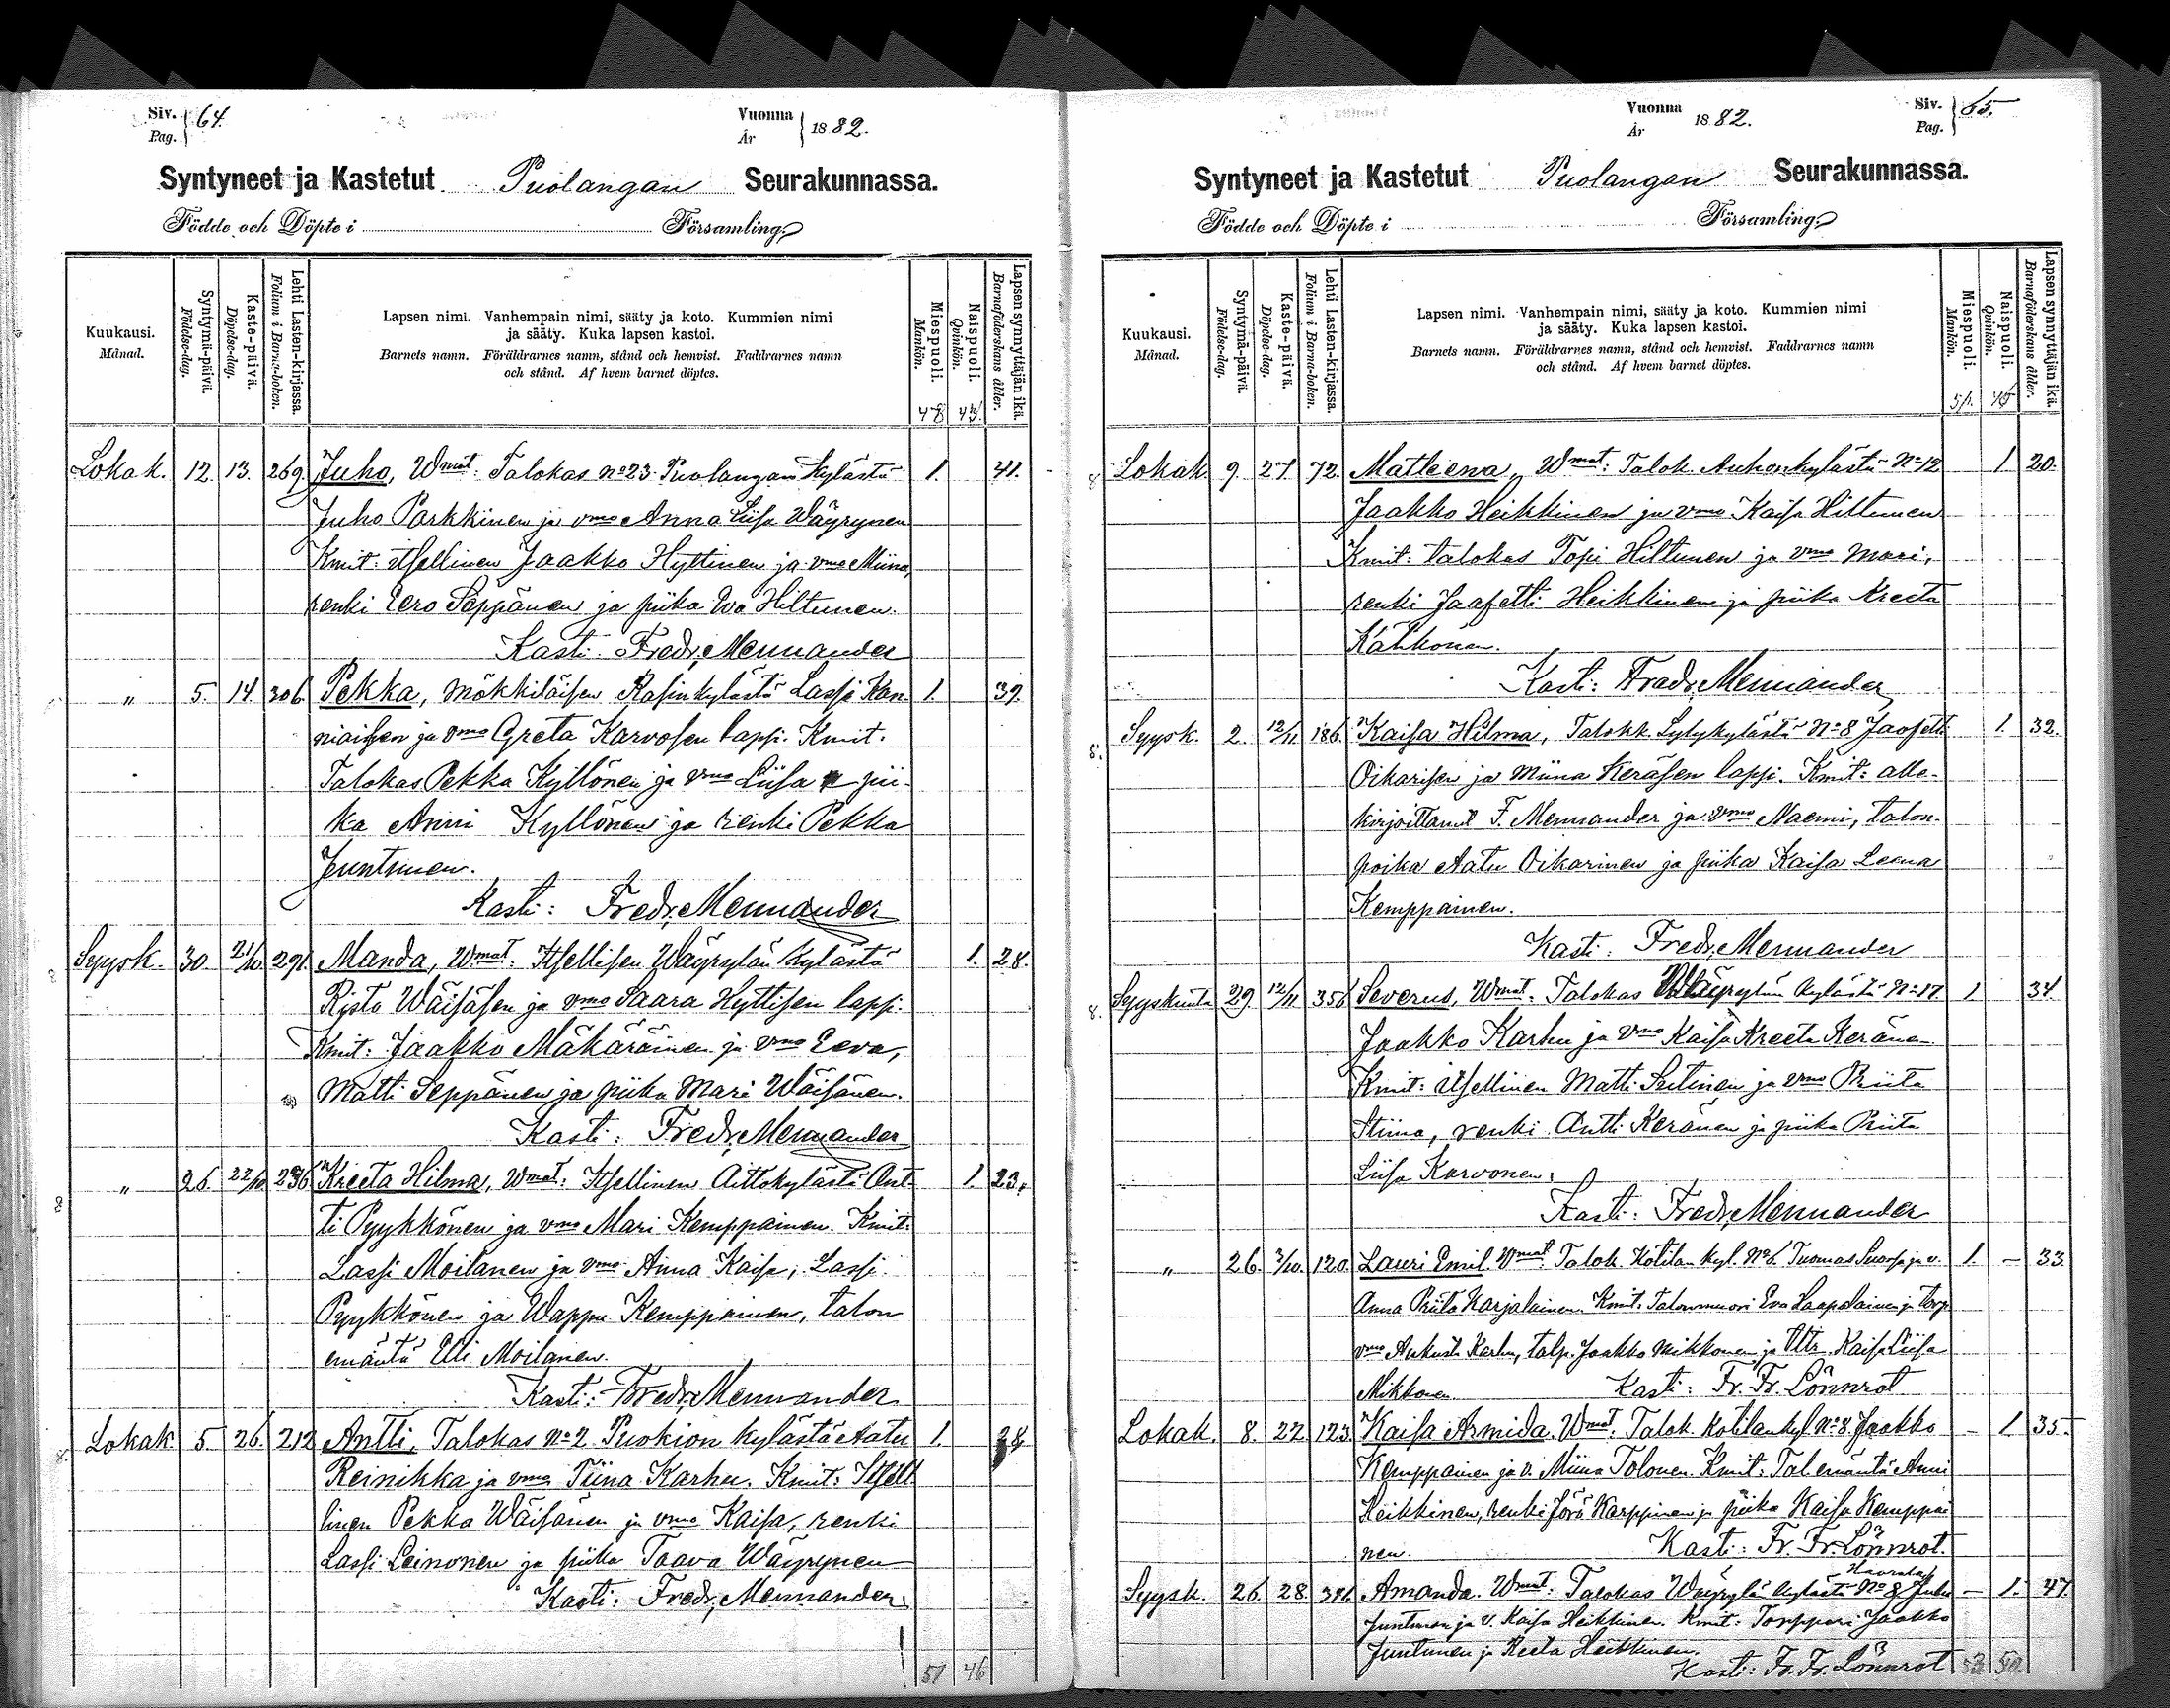 Siv. 64.
Pag.
Vuonna 1882.
År
Syntyneet ja Kastetut Puolangan Seurakunnassa.
Födde och Döpte i Församling.
Kuukausi.
Månad.
Syntymä-päivä.
Födelse-dag.
Kaste-päivä.
Döpelse-dag.
Lehti Lasten-kirjassa.
Folium i Barna-boken.
Lapsen nimi. Vanhempain nimi, sääty ja koto. Kummien nimi
ja sääty. Kuka lapsen kastoi.
Barnets namn. Föräldrarnes namn, stånd och hemvist. Faddrarnes namn
och stånd. Af hvem barnet döptes.
Miespuoli.
Mankön.
Naispuoli.
Qvinkön.
Lapsen synnyttäjän ikä.
Barnaföderskans ålder.
48 43.
Lokak. 12. 13. 269. Juho, Wmat: Talokas No 23 Puolangan kylästä 1. 41.
Juho Parkkinen ja vmo Anna Liisa Wäyrynen
Kmit: itsellinen Jaakko Hyttinen ja vmo Miina,
renki Eero Seppänen ja piika Eva Hiltunen.
Kasti: Fredr. Mennander
" 5. 14. 306. Pekka, mökkiläisen Rasinkylästä Lassi Kan- 1. 39.
niaisen ja vmo Greta Karvosen lapsi. Kmit.
Talokas Pekka Kyllönen ja vmo Liisa pii-
ka Anni Kyllönen ja renki Pekka
Juntunen.
Kasti: Fredr. Mennander
Syysk. 30. 21/10 291. Manda, Wmat: Itsellisen Wäyrylän kylästä 1. 28.
Risto Wäisäsen ja vmo Saara Hyttisen lapsi.
Kmit: Jaakko Mäkäräinen ja vmo Eeva,
Matti Seppänen ja piika Mari Wäisänen.
Kasti: Fredr. Mennander
" 26. 22/10 236 Kreeta Hilma, Wmat: Itsellinen Aittokylästä Ant- 1. 23.
ti Pyykkönen ja vmo Mari Kemppainen. Kmit:
Lassi Moilanen ja vmo Anna Kaisa, Lassi
Pyykkönen ja Wappu Kemppainen, talon
emäntä Elli Moilanen.
Kasti: Fredr. Mennander
Lokak. 5. 26. 212 Antti, Talokas No 2 Puokion kylästä Aatu 1. 28
Reinikka ja vmo Tiina Karhu. Kmit: Itsel-
linen Pekka Wäisänen ja vmo Kaisa, renki
Lassi Leinonen ja piika Taava Wäyrynen
Kasti: Fredr. Mennander
51 46
Vuonna 1882.
År
Siv. 65.
Pag.
Syntyneet ja Kastetut Puolangan Seurakunnassa.
Födde och Döpte i Församling.
Kuukausi.
Månad.
Syntymä-päivä.
Födelse-dag.
Kaste-päivä.
Döpelse-dag.
Lehti Lasten-kirjassa.
Folium i Barna-boken.
Lapsen nimi. Vanhempain nimi, sääty ja koto. Kummien nimi
ja sääty. Kuka lapsen kastoi.
Barnets namn. Föräldrarnes namn, stånd och hemvist. Faddrarnes namn
och stånd. Af hvem barnet döptes.
Miespuoli.
Mankön.
Naispuoli.
Qvinkön.
Lapsen synnyttäjän ikä.
Barnaföderskans ålder.
51.
Lokak. 9. 27. 72. Matleena, Wmat: Talok. Auhonkylästä No 12 1 20.
Jaakko Heikkinen ja vmo Kaisa Hiltunen
Kmit: talokas Topi Hiltunen ja vmo Mari,
renki Jaafetti Heikkinen ja piika Kreeta
Kähkönen.
Kasti: Fredr. Mennander
Syysk. 2. 12/11. 186. Kaisa Hilma, Talokk. Lylykylästä No 8 Jaafetti 1. 32.
Oikarisen ja Miina Keräsen lapsi. Kmit: alle-
kirjoittanut F. Mennander ja vmo Naemi, talon-
poika Aatu Oikarinen ja piika Kaisa Leena
Kemppainen.
Kasti: Fredr. Mennander
Syyskuuta 29 12/11 356 Severus, Wmat: Talokas Wäyrylän kylästä No 17 1 34.
Jaakko Karhu ja vmo Kaisa Kreeta Keränen
Kmit: itsellinen Matti ja vmo Priita
Stiina, renki Antti Keränen ja piika Priita
Liisa Karvonen.
Kasti: Fredr. Mennander
" 26. 3/10. 120. Lauri Emil. Wmat: Talok. Kotilan kyl. No 6. Tuomas ja v. 1. – 33.
Anna Priita Karjalainen. Kmit: Talonmuori Eva ja torp.
vmo Aukusti Karhu, talp. Jaakko Mikkonen ja Kaisa Liisa
Mikkonen. Kasti: Fr. Fr. Lönnrot
Lokak. 8. 22. 123. Kaisa Armida. Wmat: Talok. Kotilankyl. No 8. Jaakko – 1 35.
Kemppainen ja v. Miina Tolonen. Kmit: Tal. emäntä Anni
Heikkinen, renki Jörö Karppinen ja piika Kaisa Kemppai
nen. Kasti: Fr. Fr. Lönnrot.
Syysk. 26. 28. 376 Amanda. Wmat: Talokas Wäyrylän kylästä No 8 Juho – 1. 47.
Juntunen ja v. Kaisa Heikkinen. Kmit: Torppari Jaakko
Juntunen ja Reeta Heikkinen.
Kasti: Fr. Fr. Lönnrot 53 50.